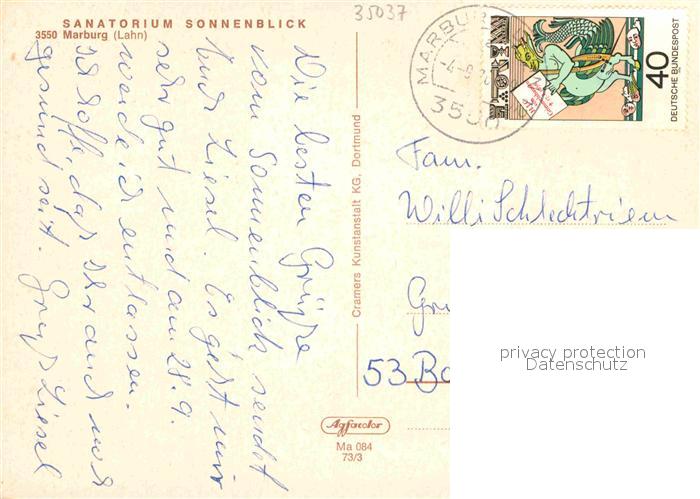 SANATORIUM SONNENBLICK
3550 Marburg (Lahn)
35037
MARBUR
355
40
DEUTSCHE BUNDESPOST
Die besten Grüße
vom Sonnenblick sendet
Euch Liesel. Es geht mir
sehr gut und am 28. 9.
werde ich entlassen.
Ich hoffe, daß Ihr auch noch
gesund seit. Gruß Liesel
Cramers Kunstanstalt KG, Dortmund
Fam.
Willi Schlechtriem
53 Bo
privacy protection
Datenschutz
Agfacolor
Ma 084
73/3